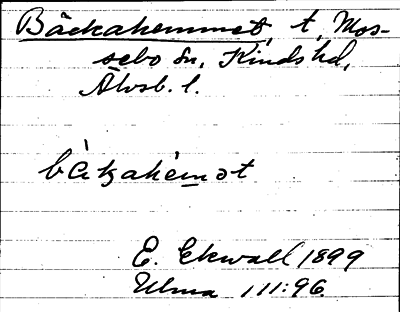 Bäckahemmet, t, Mos-
sebo sn, Kinds hd,
Älvsb. l.
E. Ekwall 1899
Ulma 111:96